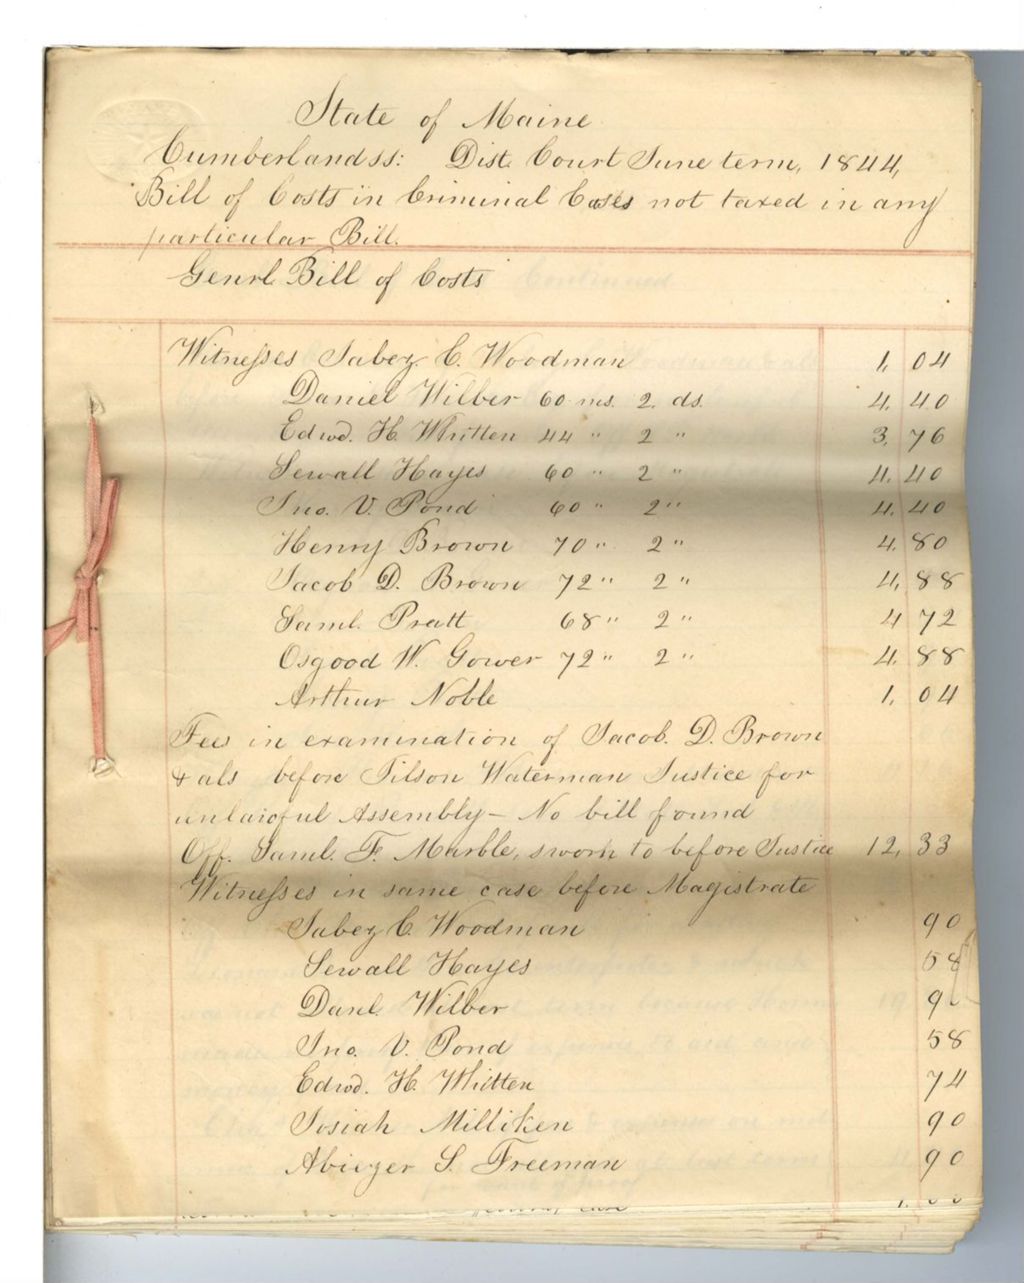 State of Maine
Cumberland ss: Dist. Court June term, 1844,
Bill of Costs in Criminal Cases not taxed in any
particular Bill.
Genrl. Bill of Costs
Witnesses Jabez. C. Woodman 1, 04
Daniel Wilber 60 ms. 2. ds. 4, 40
Edwd. H. Whitten 44 " 2 " 3, 76
Sewall Hayes 60 " 2 " 4, 40
Jno. V. Pond 60 " 2 " 4, 40
Henry Brown 70 " 2 " 4, 80
Jacob D. Brown 72 " 2 " 4, 88
Saml. Pratt 68 " 2 " 4 72
Osgood W. Gower 72 " 2 " 4, 88
Arthur Noble 1, 04
Fees in examination of Jacob. D. Brown
& als before Tilson Waterman Justice for
unlawful Assembly – No bill found
Off. Saml. F. Marble, sworn to before Justice 12, 33
Witnesses in same case before Magistrate
Jabez C. Woodman 90
Sewall Hayes 58
Danl. Wilber
Jno. V. Pond 58
Edwd. H. Whitten 74
Josiah Milliken 90
Abiezer S. Freeman 90